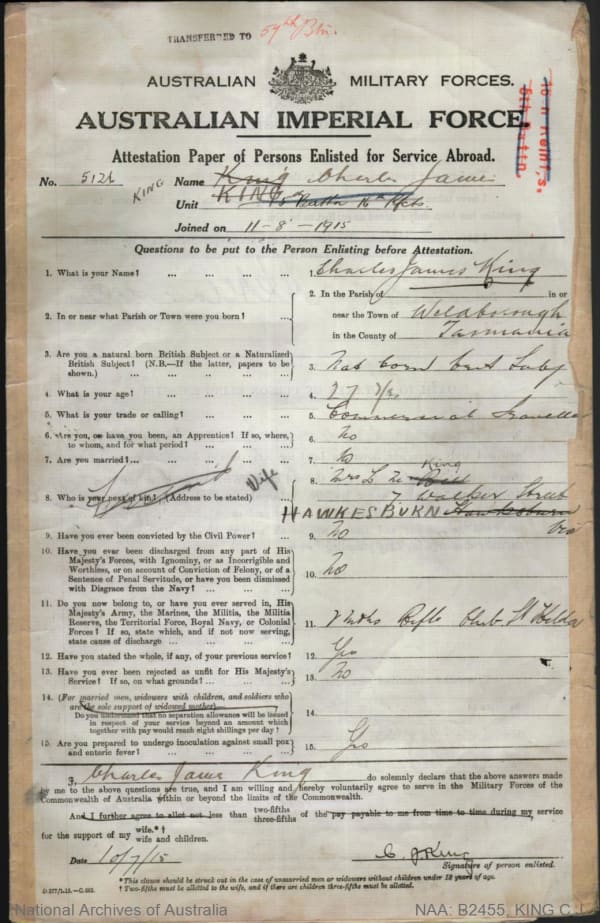 TRANSFERRED TO 59th Btn.
AUSTRALIAN MILITARY FORCES.
AUSTRALIAN IMPERIAL FORCE.
Attestation Paper of Persons Enlisted for Service Abroad.
No. 5126 KING Name King Charles James
KING
Unit 15th Battn 16th Rfcts.
Joined on 11-8-1915
Questions to be put to the Person Enlisting before Attestation.
1. What is your Name? ... ... ... ... 1. Charles James King
2. In the Parish of in or
2. In or near what Parish or Town were you born? ... near the Town of Weldborough
in the County of Tasmania
3. Are you a natural born British Subject or a Naturalized
British Subject? (N.B.—If the latter, papers to be
shown.) ... ... ... ... ... 3. Nat born Brit Subj
4. What is your age? ... ... ... ... 4. 27 yrs
5. What is your trade or calling? ... ... ... 5. Commercial Traveller
6. Are you, or have you been, an Apprentice? If so, where,
to whom, and for what period? ... ... ... 6. No
7. Are you married? ... ... ... ... 7. No
8. Who is your next of kin? (Address to be stated) ... Wife 8. Mrs L King
7 Walker Street
HAWKESBURN Hawksburn
Vic
9. Have you ever been convicted by the Civil Power? ... 9. No
10. Have you ever been discharged from any part of His
Majesty's Forces, with Ignominy, or as Incorrigible and
Worthless, or on account of Conviction of Felony, or of a
Sentence of Penal Servitude, or have you been dismissed
with Disgrace from the Navy? ... ... ... 10. No
11. Do you now belong to, or have you ever served in, His
Majesty's Army, the Marines, the Militia, the Militia
Reserve, the Territorial Force, Royal Navy, or Colonial
Forces? If so, state which, and if not now serving,
state cause of discharge ... ... ... 11. Rifle Club St Kilda
12. Have you stated the whole, if any, of your previous service? 12. Yes
13. Have you ever been rejected as unfit for His Majesty's
Service? If so, on what grounds? ... ... 13. No
14. (For married men, widowers with children, and soldiers who
are the sole support of widowed mother)
Do you understand that no separation allowance will be issued
in respect of your service beyond an amount which
together with pay would reach eight shillings per day? 14.
15. Are you prepared to undergo inoculation against small pox
and enteric fever? ... ... ... ... 15. Yes
I, Charles James King do solemnly declare that the above answers made
by me to the above questions are true, and I am willing and hereby voluntarily agree to serve in the Military Forces of the
Commonwealth of Australia within or beyond the limits of the Commonwealth.
And I further agree to allot not less than two-fifths three-fifths of the pay payable to me from time to time during my service
for the support of my wife.*† wife and children.
Date 10/7/15 C. J. King
Signature of person enlisted.
*This clause should be struck out in the case of unmarried men or widowers without children under 18 years of age.
† Two-fifths must be allotted to the wife, and if there are children three-fifths must be allotted.
National Archives of Australia NAA: B2455, KING C J